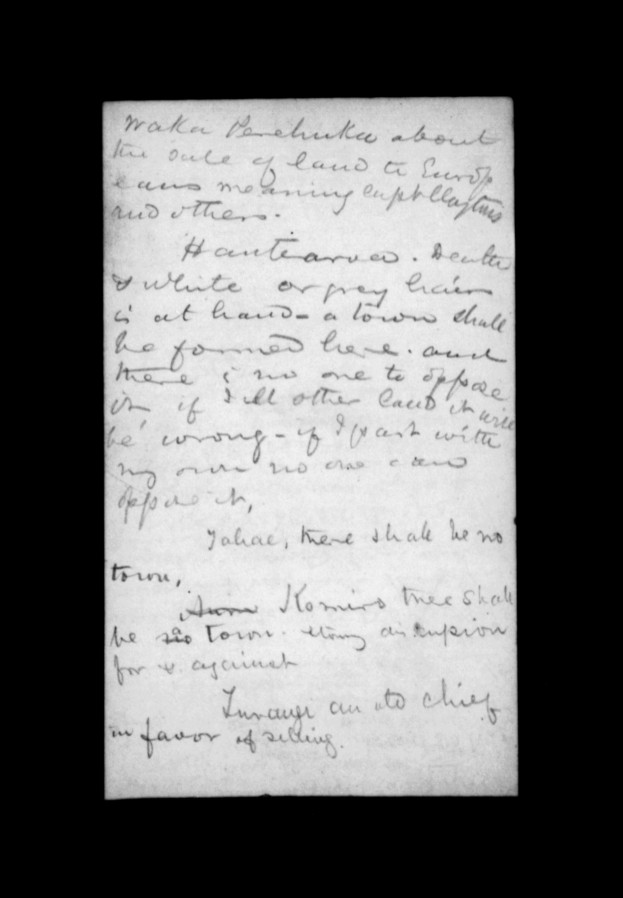 Waka Perehuka about
the sale of land to Europ
eans meaning Capt Clayton
and others.
Hautearoa. Death
& white or grey hair
is at hand - a town shall
be formed here. and
there is no one to oppose
it if I sell other land it will
be wrong - if I part with
my own no one can
oppose it,
Tahae, there shall be no
town,
Komiro there shall
be a town. strong discussion
for & against
an old chief
in favor of selling.